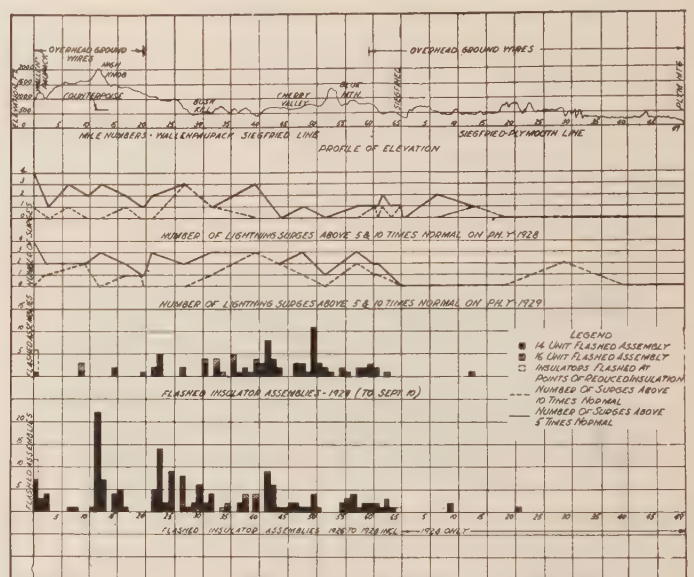 OVERHEAD GROUND WIRES
OVERHEAD GROUND WIRES
WALLEN-PAUPACK
HIGH KNOB
COUNTERPOISE
BUSH KILL
CHERRY VALLEY
BLUE MTN.
SIEGFRIED
PLYM MTG
ELEVATION FT.
2000
1500
1000
500
0
5 10 15 20 25 30 35 40 45 50 55 60 65 5 10 15 20 25 30 35 40 45 49
MILE NUMBERS - WALLENPAUPACK SIEGFRIED LINE
SIEGFRIED-PLYMOUTH LINE
PROFILE OF ELEVATION
NUMBER OF SURGES
4
3
2
1
0
NUMBER OF LIGHTNING SURGES ABOVE 5 & 10 TIMES NORMAL ON PH.Y-1928
3
2
1
0
NUMBER OF LIGHTNING SURGES ABOVE 5 & 10 TIMES NORMAL ON PH.Y-1929
FLASHED ASSEMBLIES
15
10
5
FLASHED INSULATOR ASSEMBLIES - 1929 (TO SEPT. 10)
LEGEND
14 UNIT FLASHED ASSEMBLY
16 UNIT FLASHED ASSEMBLY
INSULATORS FLASHED AT
POINTS OF REDUCED INSULATION
NUMBER OF SURGES ABOVE
10 TIMES NORMAL
NUMBER OF SURGES ABOVE
5 TIMES NORMAL
FLASHED ASSEMBLIES
20
15
10
5
5 10 15 20 25 30 35 40 45 50 55 60 65 5 10 15 20 25 30 35 40 45 49
FLASHED INSULATOR ASSEMBLIES 1926 TO 1928 INCL 1928 ONLY